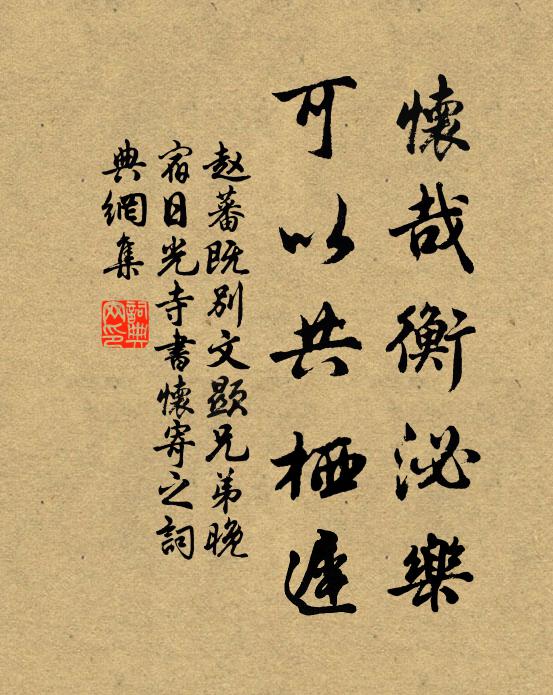 懷哉衡泌樂
可以共栖遲
赵蕃既别文顯兄弟晚
宿日光寺書懷寄之詞
典網集
詞典
网印